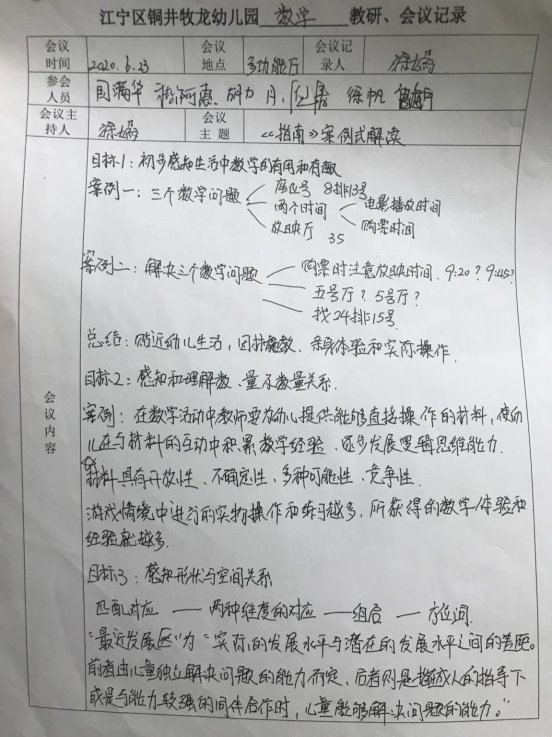 江宁区铜井牧龙幼儿园 数学 教研、会议记录
会议时间 2020.6.23 会议地点 多功能厅 会议记录人 徐嫣
参会人员 胡力月 徐帆
会议主持人 徐嫣 会议主题 《指南》案例式解读
会议内容
目标1:初步感知生活中数学的有用和有趣
案例一:三个数学问题 座位号 8排13号
两个时间 电影播放时间
购票时间
放映厅 35
案例二:解决三个数学问题 购票时注意放映时间.9:20?9:45?
五号厅?5号厅?
找24排15号.
总结:贴近幼儿生活,因材施教、亲身体验和实际操作.
目标2:感知和理解数、量及数量关系.
案例:在数学活动中教师要为幼儿提供能够直接操作的材料,使幼
儿在与材料的互动中积累数学经验、逐步发展逻辑思维能力.
材料具有开放性、不确定性、多种可能性、竞争性.
游戏情境中进行的实物操作和练习越多,所获得的数学体验和
经验就越多.
目标3:感知形状与空间关系
匹配对应 —— 两种维度的对应 —— 组合 —— 方位词.
"最近发展区"为"实际的发展水平与潜在的发展水平之间的差距。
前者由儿童独立解决问题的能力而定,后者则是指在成人的指导下
或是与能力较强的同伴合作时,儿童能够解决问题的能力。"